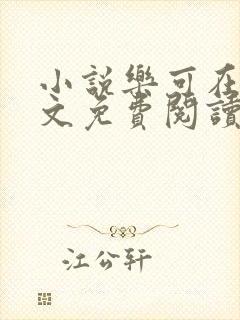 小說樂可在
文免費閱讀
江公轩